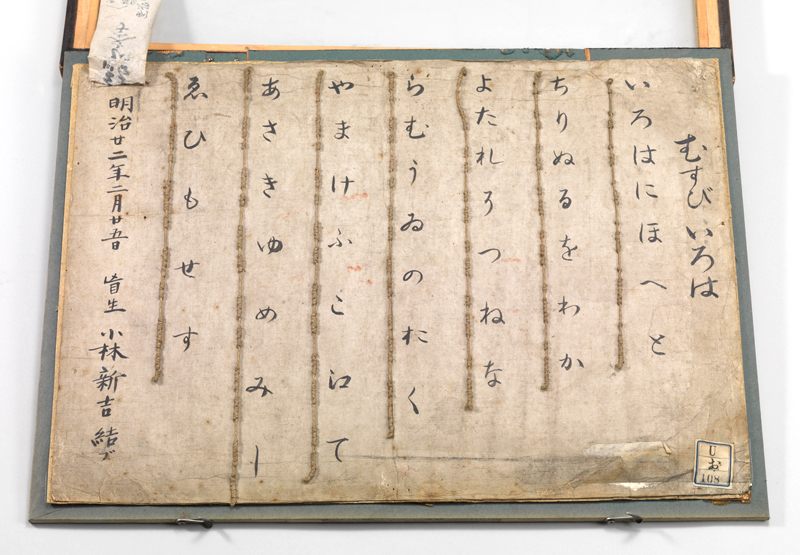 むすびいろは
いろはにほへと
ちりぬるをわか
よたれそつねな
らむうゐのおく
やまけふこ江て
あさきゆめみし
ゑひもせす
明治廿二年二月廿五日 盲生 小林新吉 結ブ
U
お
108